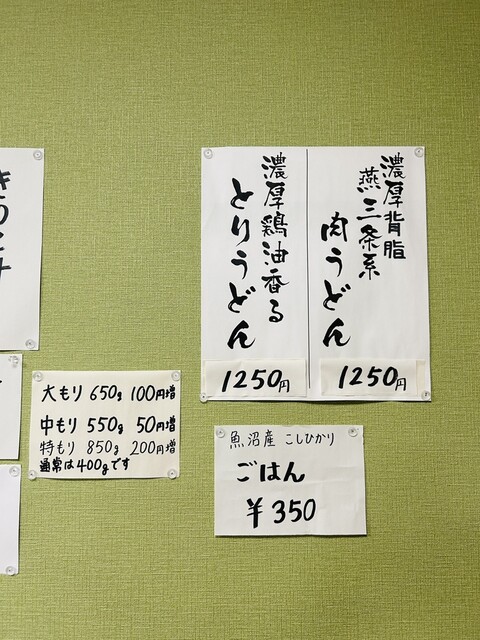 濃厚背脂
燕三条系
肉うどん
1250円
濃厚鶏油香る
とりうどん
1250円
魚沼産 こしひかり
ごはん
¥350
大もり 650g 100円増
中もり 550g 50円増
特もり 850g 200円増
通常は400gです